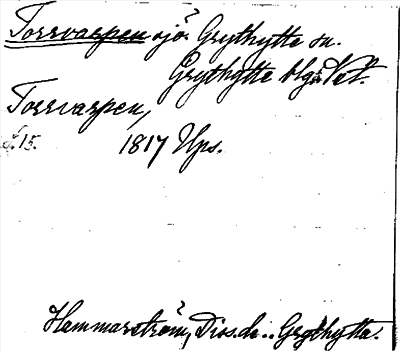 Torrvarpen sjö. Grythytte sn.
Grythytte blg.
Torrvarpen,
f. 15. 1817 Ups.
Hammarström, Diss. de .. Grythytta.